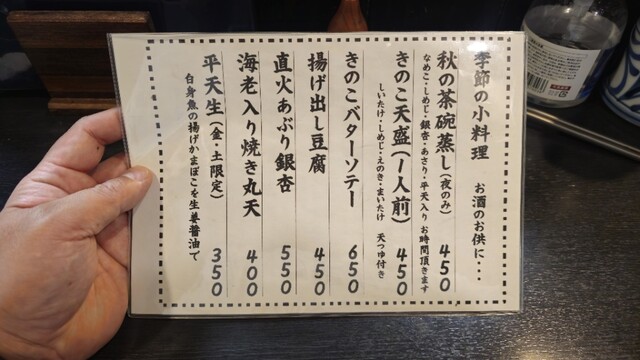 季節の小料理 お酒のお供に・・・
秋の茶碗蒸し(夜のみ) 450
なめこ・しめじ・銀杏・あさり・平天入り お時間頂きます
きのこ天盛(1人前) 450
しいたけ・しめじ・えのき・まいたけ 天つゆ付き
きのこバターソテー 650
揚げ出し豆腐 450
直火あぶり銀杏 550
海老入り焼き丸天 400
平天生(金・土限定) 350
白身魚の揚げかまぼこを生姜醤油で